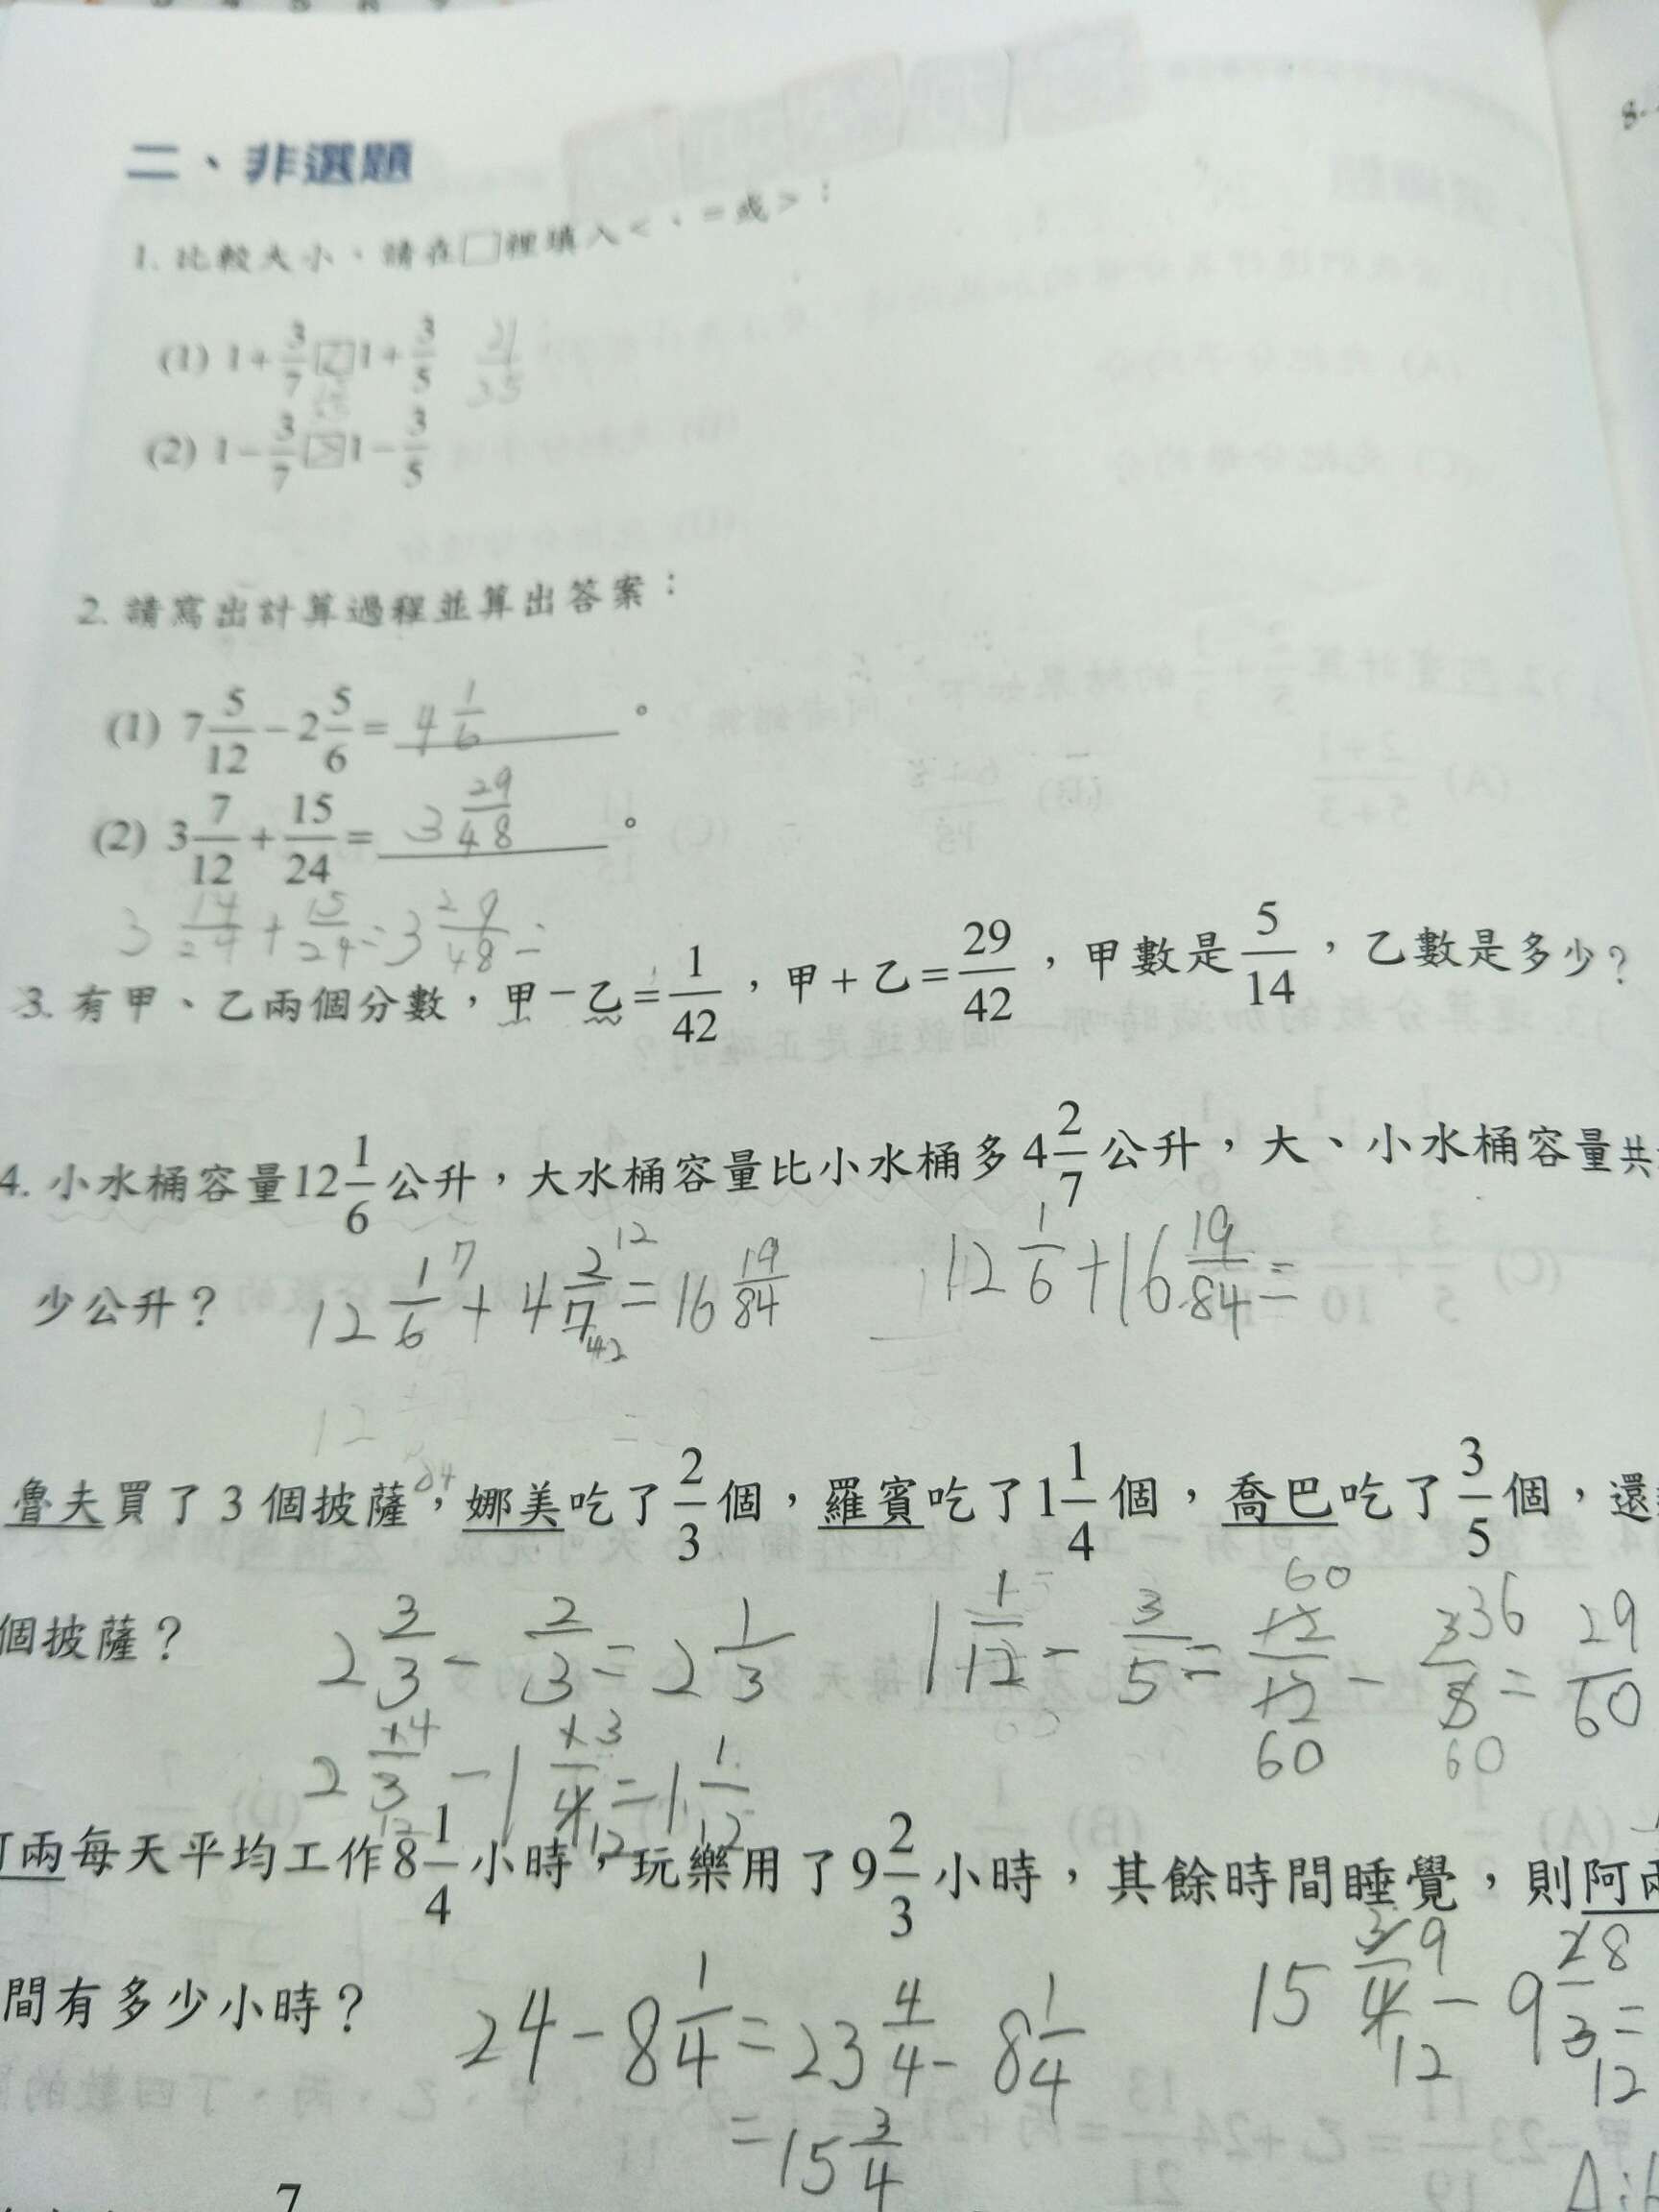 二、非選題
1. 比較大小,請在□裡填入<、=或>:
(1) 1+3/7 □ 1+3/5 21/35
(2) 1-3/7 □ 1-3/5
2. 請寫出計算過程並算出答案:
(1) 7 5/12 - 2 5/6 = 4 1/6 。
(2) 3 7/12 + 15/24 = 3 29/48 。
3 14/24 + 15/24 = 3 29/48 =
3. 有甲、乙兩個分數,甲-乙=1/42,甲+乙=29/42,甲數是5/14,乙數是多少?
4. 小水桶容量12 1/6公升,大水桶容量比小水桶多4 2/7公升,大、小水桶容量共
少公升? 12 1/6 7 + 4 2/7 12 42 = 16 19/84 12 1/6 + 16 19/84 =
魯夫買了3個披薩,娜美吃了2/3個,羅賓吃了1 1/4個,喬巴吃了3/5個,還
個披薩? 2 3/3 - 2/3 = 2 1/3 1 1/12 - 3/5 = 60/60 - 36/60 = 29/60
2 4/12 - 1 3/12 = 1 1/12
兩每天平均工作8 1/4小時,玩樂用了9 2/3小時,其餘時間睡覺,則阿
間有多少小時? 24 - 8 1/4 = 23 4/4 - 8 1/4 15 9/12 - 9 8/12 =
= 15 3/4
7